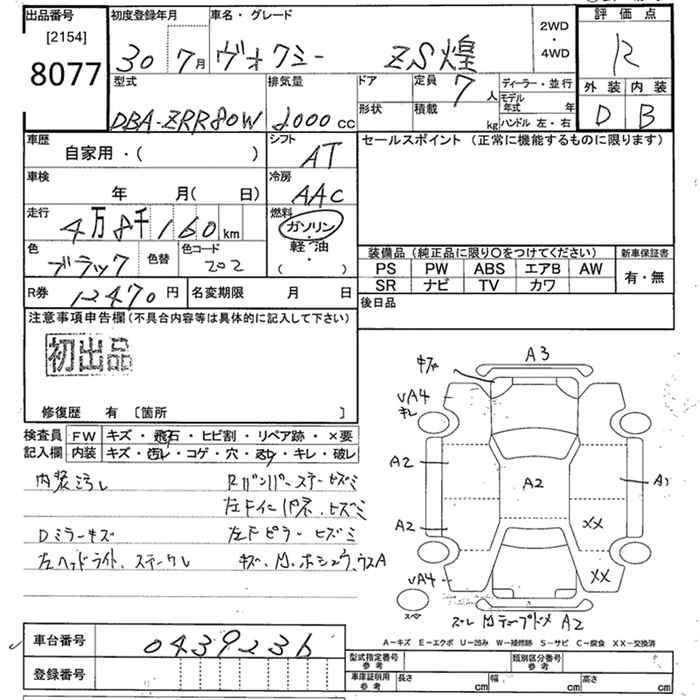 出品番号 初度登録年月 車名・グレード 2WD・4WD 評価点
[2154]
8077 30 7月 ヴォクシー ZS煌 R
型式 排気量 ドア 定員 7人 ディーラー・並行 外装 内装
DBA-ZRR80W 2000cc 形状 積載 kg モデル年式 年 ハンドル 左・右 D B
車歴 シフト セールスポイント (正常に機能するものに限ります)
自家用・( ) AT
車検 冷房
年 月( 日) AAC
走行 燃料
4万8千160km ガソリン・軽油
色 色替 色コード ( )
ブラック 202
装備品(純正品に限り〇をつけてください) 新車保証書
PS PW ABS エアB AW 有・無
SR ナビ TV カワ
R券 12470円 名変期限 月 日 後日品
注意事項申告欄(不具合内容等は具体的に記入して下さい)
初出品
修復歴 有 〔箇所 〕
検査員 FW キズ・飛石・ヒビ割・リペア跡・×要
記入欄 内装 キズ・汚レ・コゲ・穴・ネジ・キレ・破レ
内装ヨゴレ Rバンパーステーヒズミ
左Fインパネ、ヒズミ
Dミラーキズ 左Fピラーヒズミ
左ヘッドライト、ステーワレ
A3
キズ
VA4
キレ
A2 A2 A1
A2 XX
VA4 XX
スペア
ズレ Mテープドメ A2
A−キズ E−エクボ U−凹み W−補修跡 S−サビ C−腐食 XX−交換済
車台番号 0439236 型式指定番号 参考 類別区分番号 参考
登録番号 車庫証明用 参考 長さ cm 幅 cm 高さ cm